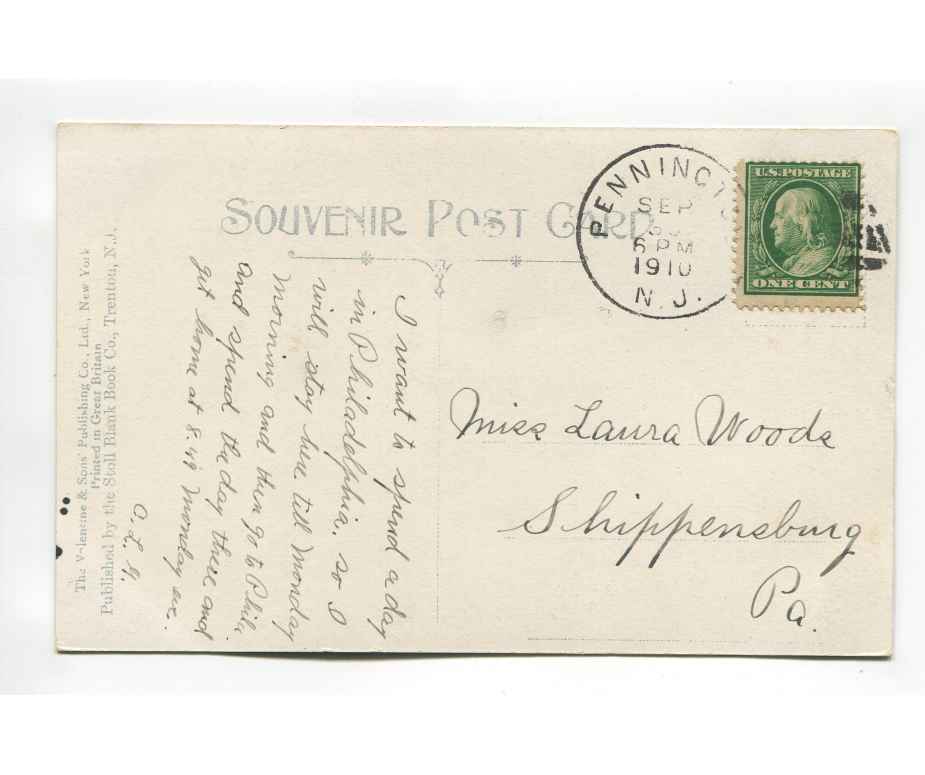 SOUVENIR POST CARD
PENNINGT
SEP
6 PM
1910
N. J.
U.S. POSTAGE
ONE CENT
I want to spend a day
in Philadelphia. so I
will stay here till Monday
morning and then go to Phila
and spend the day there and
get home at 8.49 Monday eve.
O. L. G.
Miss Laura Woods
Shippensburg
Pa.
The V-lentine & Sons' Publishing Co., Ltd., New York
Printed in Great Britain
Published by the Stoll Blank Book Co., Trenton, N.J.